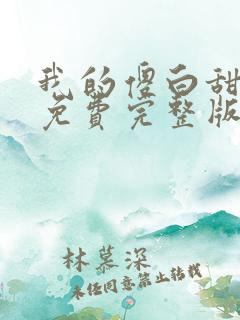 我的傻白甜
免費完整版
林慕深
未经同意禁止转载